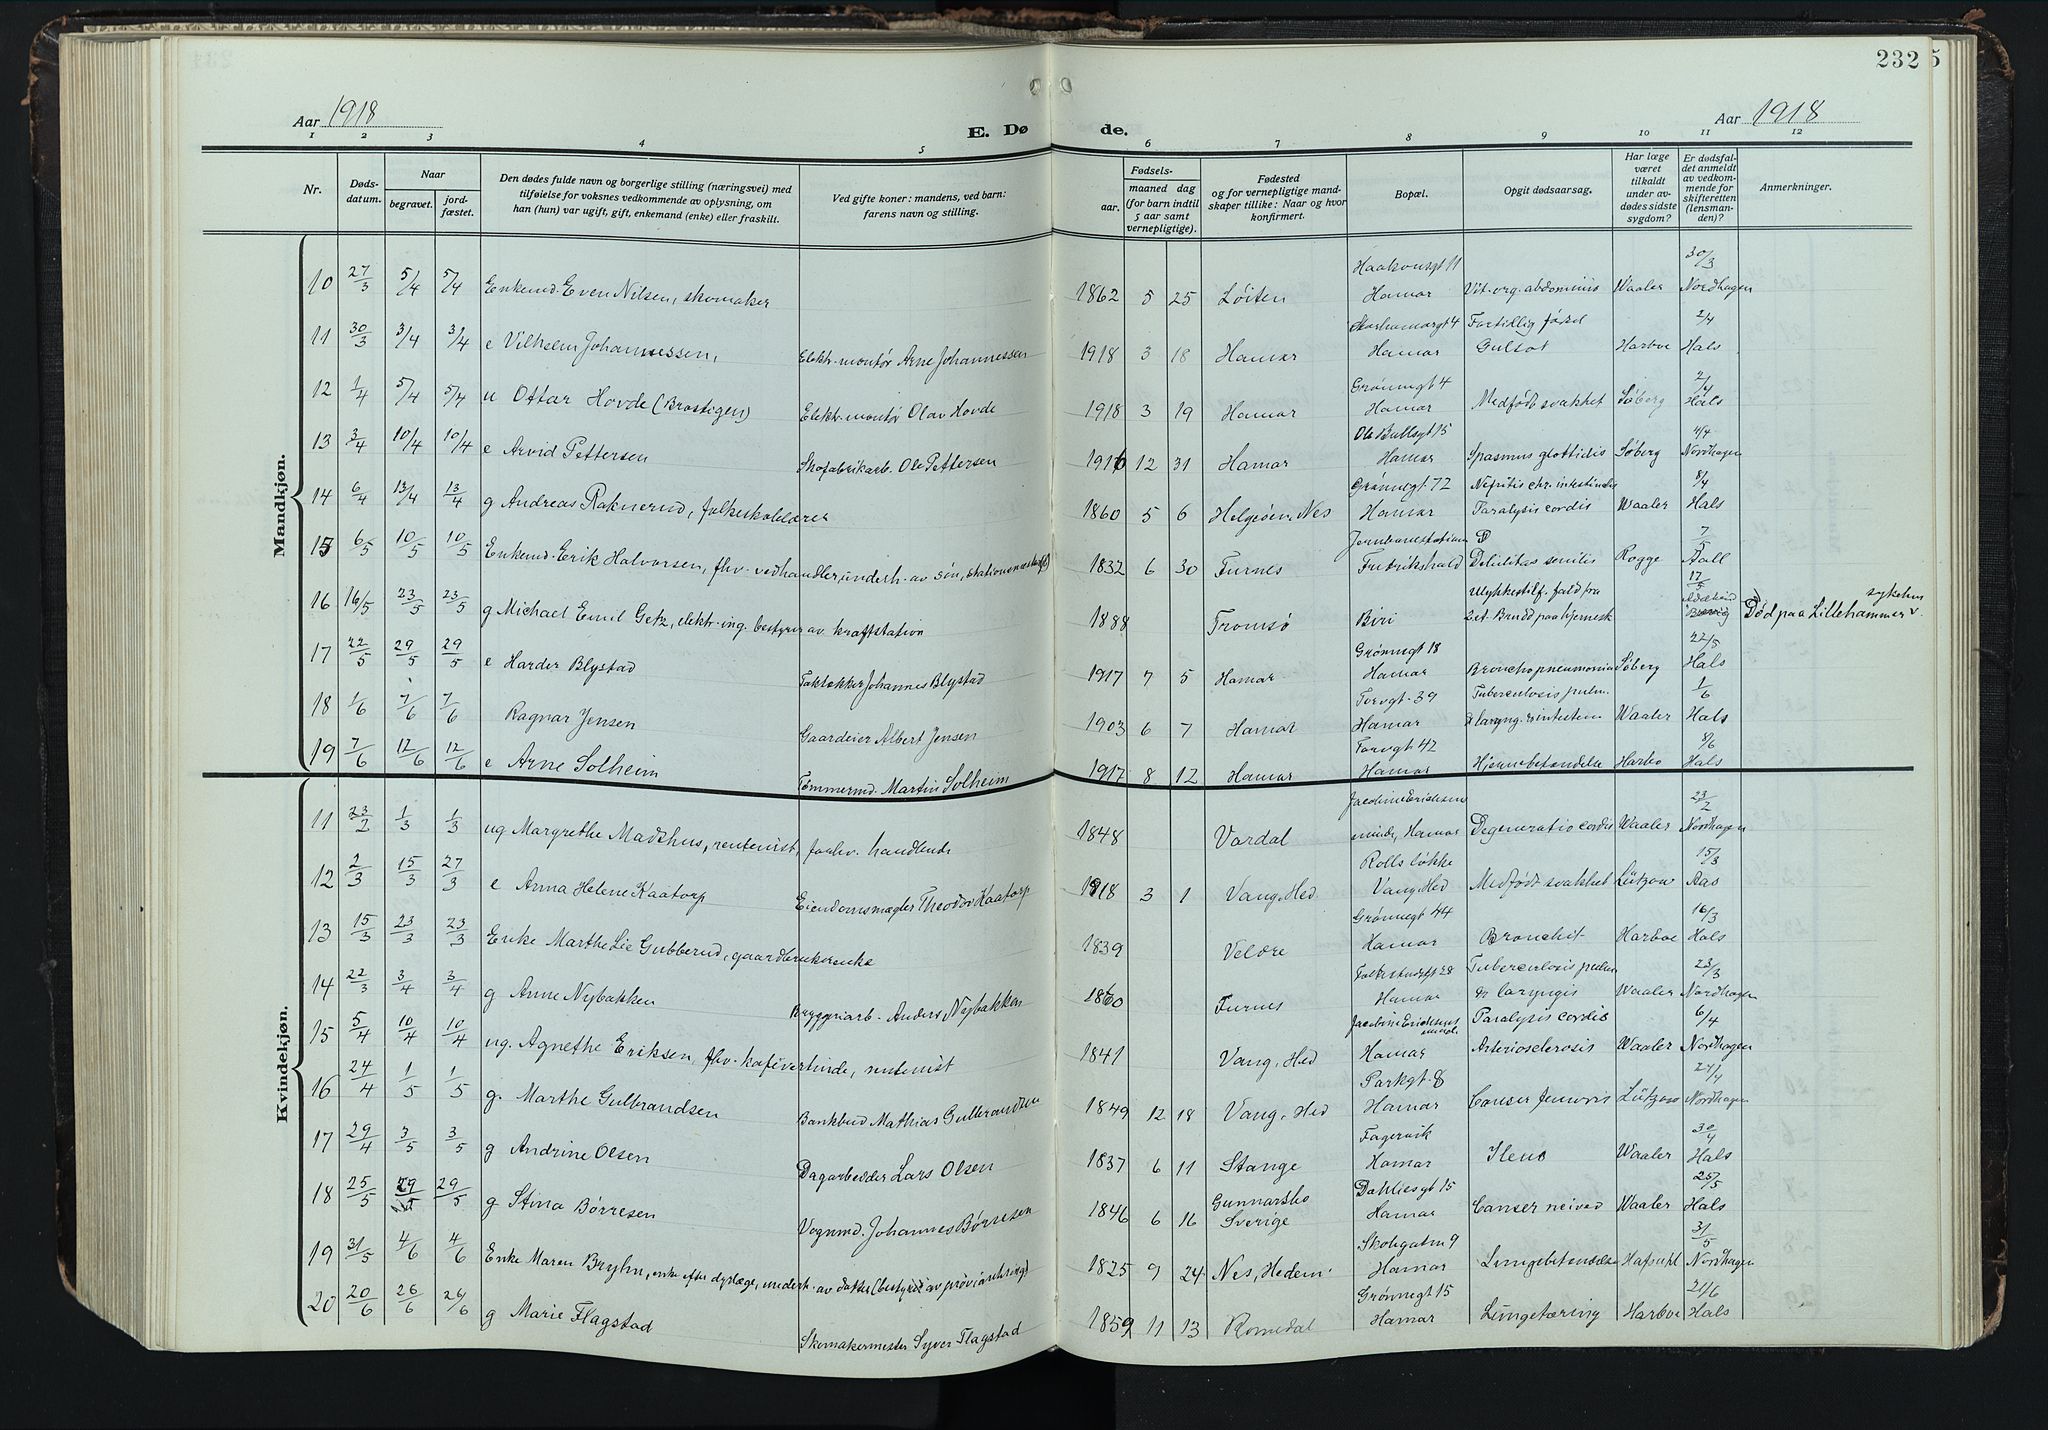 232
Aar 1918
E. Døde.
Aar 1918
1 2 3 4 5 6 7 8 9 10 11 12
Nr.
Dødsdatum.
Naar
begravet.
jordfæstet.
Den dødes fulde navn og borgerlige stilling (næringsvei) med
tilføielse for voksnes vedkommende av oplysning, om
han (hun) var ugift, gift, enkemand (enke) eller fraskilt.
Ved gifte koner: mandens, ved barn:
farens navn og stilling.
Fødsels-
aar.
maaned dag
(for barn indtil
5 aar samt
vernepligtige).
Fødested
og for vernepligtige mandskaper tillike: Naar og hvor
konfirmert.
Bopæl.
Opgit dødsaarsag.
Har læge
været
tilkaldt
under avdødes sidste
sygdom?
Er dødsfaldet anmeldt
av vedkommende for
skifteretten
(lensmanden)?
Anmerkninger.
Mandkjøn.
10 27/3 5/4 5/4 Enkemd. Even Nilsen, skomaker 1862 5 25 Løiten Haakonsgt 11 Hamar Vit. org. abdominis Waaler 30/3 Nordhagen
11 30/3 3/4 3/4 e Vilhelm Johannessen, Elektr. montør Arne Johannessen 1918 3 18 Hamar Storhamargt 4 Hamar Fortidlig føzel Gulsot Harboe 2/4 Hals
12 1/4 5/4 5/4 u Ottar Hovde (Brostigen) Elektr. montør Olav Hovde 1918 3 19 Hamar Grønnegt 4 Hamar Medfødt svakhet Søberg 2/4 Hals
13 3/4 10/4 10/4 e Arvid Pettersen Skofabrikarb. Ole Pettersen 1916 12 31 Hamar Ole Bullsgt 15 Hamar Spasmus glottidis Søberg 4/4 Nordhagen
14 6/4 13/4 13/4 g Andreas Raknerud, folkeskolelærer 1860 5 6 Helgøen, Nes Grønnegt 72 Hamar Nefritis chr. intestinalis Paralysis cordis Waaler 8/4 Hals
15 6/5 10/5 10/5 Enkemd. Erik Halvorsen, fhv. vedhandler, underh. av søn, stationsmester 1832 6 30 Furnes Jernbanestationen Fredrikshald Debilitas senilis Rogge 7/5 Aall
16 16/5 23/5 23/5 g Michael Emil Getz, elektr. ing. bestyrer av kraftstation 1888 Tromsø Biri Ulykkestilf. fald fra Brudd paa hjernesk 17/5 Død paa Lillehammer sykehus
17 22/5 29/5 29/5 e Harder Blystad Taktækker Johannes Blystad 1917 7 5 Hamar Grønnegt 18 Hamar Bronchopneumonia Søberg 22/5 Hals
18 1/6 7/6 7/6 Ragnar Jensen Gaardeier Albert Jensen 1903 6 7 Hamar Torvgt. 39 Hamar Tuberculosis pulm. & laryng. & intestin Waaler 1/6 Hals
19 7/6 12/6 12/6 e Arne Solheim Tømmermd. Martin Solheim 1917 8 12 Hamar Torvgt 42 Hamar Hjernebetændelse Harbo 8/6 Hals
Kvindekjøn.
11 23/2 1/3 1/3 ug Margrethe Madshus, rentenist, forhv. handlende 1848 Vardal Jacobine Erichsens minde, Hamar Degeneratio cordis Waaler 23/2 Nordhagen
12 2/3 15/3 27/3 e Anna Helene Kaatorp Eiendomsmægler Theodor Kaatorp 1918 3 1 Vang, Hed. Rolls løkke Vang, Hed Medfødt svakhet Lützow 15/3 Aas
13 15/3 23/3 23/3 Enke Marthe Lie Gubberud, gaardbrukerenke 1839 Veldre Grønnegt 44 Hamar Bronchit Harboe 16/3 Hals
14 22/3 3/4 3/4 g Anne Nybakken Bryggeriarb. Anders Nybakken 1860 Furnes Folkestadsgt 28 Hamar Tuberculosis pulm & laryngis Waaler 23/3 Nordhagen
15 5/4 10/4 10/4 ug. Agnethe Eriksen, fhv. kafévertinde, rentenist 1841 Vang, Hed Jacobine Erichsens minde Hamar Paralysis cordis Arteriosclerosis Waaler 6/4 Nordhagen
16 24/4 1/5 1/5 g. Marthe Gulbrandsen Bankbud Mathias Gulbrandsen 1849 12 18 Vang, Hed Parkgt. 8 Hamar Canser femoris Lützow 24/4 Nordhagen
17 29/4 3/5 3/5 g Andrine Olsen Dagarbeider Lars Olsen 1837 6 11 Stange Fagervik Hamar Ileus Waaler 30/4 Hals
18 25/5 29/5 29/5 g Stina Børresen Vognmd. Johannes Børresen 1846 6 16 Gunnarsko Sverige Dahliesgt 15 Hamar Canser Waaler 25/5 Hals
19 31/5 4/6 4/6 Enke Maren Bryhn, enke efter dyrlæge, underh. av datter (bestyrer av proviantering) 1825 9 24 Nes, Hedem. Skolegaten 9 Hamar Lungebetændelse Hafsahl 31/5 Nordhagen
20 20/6 26/6 26/6 g Marie Flagstad Skomakermester Syver Flagstad 1859 11 13 Romedal Grønnegt 15 Hamar Lungetæring Harboe 21/6 Hals